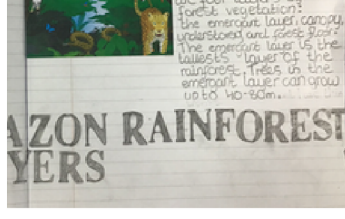 forest vegetation:
the emergent layer, canopy,
understorey and forest floor.
The emergent layer is the
tallests layer of the
rainforest. Trees in the
emergent layer can grow
up to 40-80m.
AZON RAINFOREST
YERS